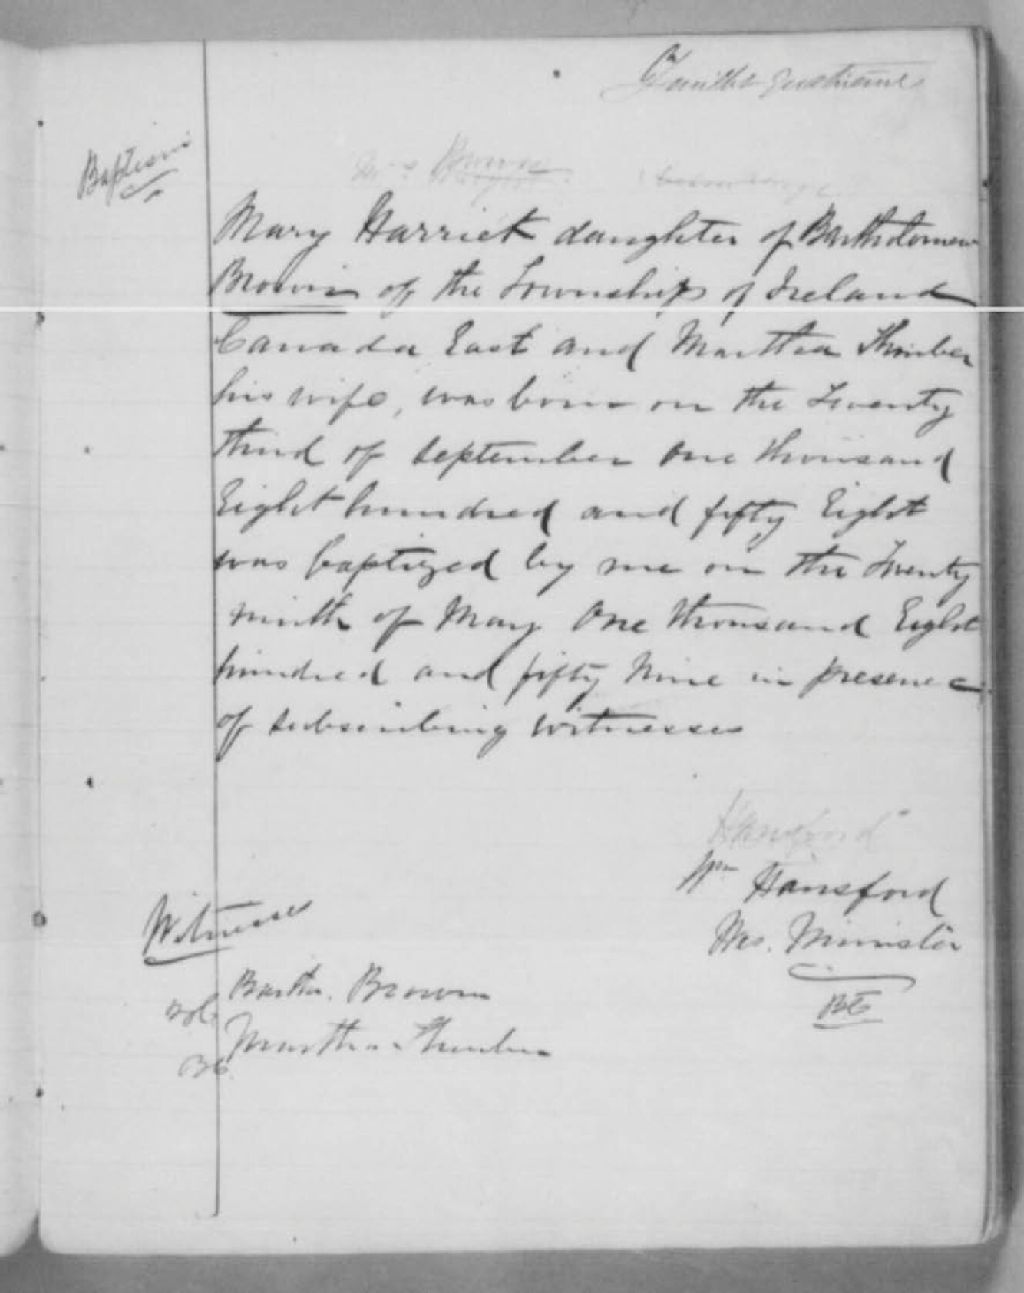 Baptism
Mrs Brown
Mary Harriet daughter of Bartholomew
Brown of the Township of Ireland
Canada East and Martha Thurber
his wife, was born on the Twenty
third of September One thousand
Eight hundred and fifty Eight
was baptized by me on the Twenty
ninth of May One thousand Eight
hundred and fifty Nine in presence
of subscribing witnesses
Hansford
Wm Hansford
Wes. Minister
Witnesses
Barthw. Brown
Martha Thurber